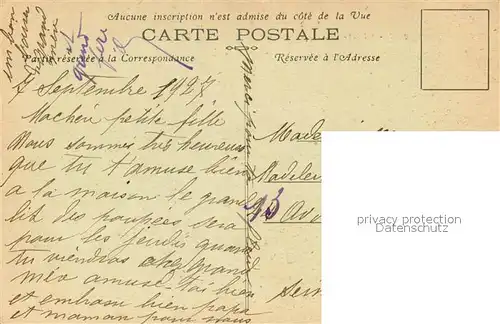 Aucune inscription n'est admise du côté de la Vue
CARTE POSTALE
Partie réservée à la Correspondance
Réservée à l'Adresse
7 Septembre 1927
Ma chéri petite fille
Nous sommes très heureuse
que tu t'amuse bien
a la maison le grand
lit des poupees sera
pour les jeudis quand
tu viendras chez grand
mèr amuse toi bien
et embrase bien papa
et maman pour nous
un bon
grand
mère
et
grand
père
Merci pour
Made
Madele
13 Av
privacy protection
DelCampe.net
Sein